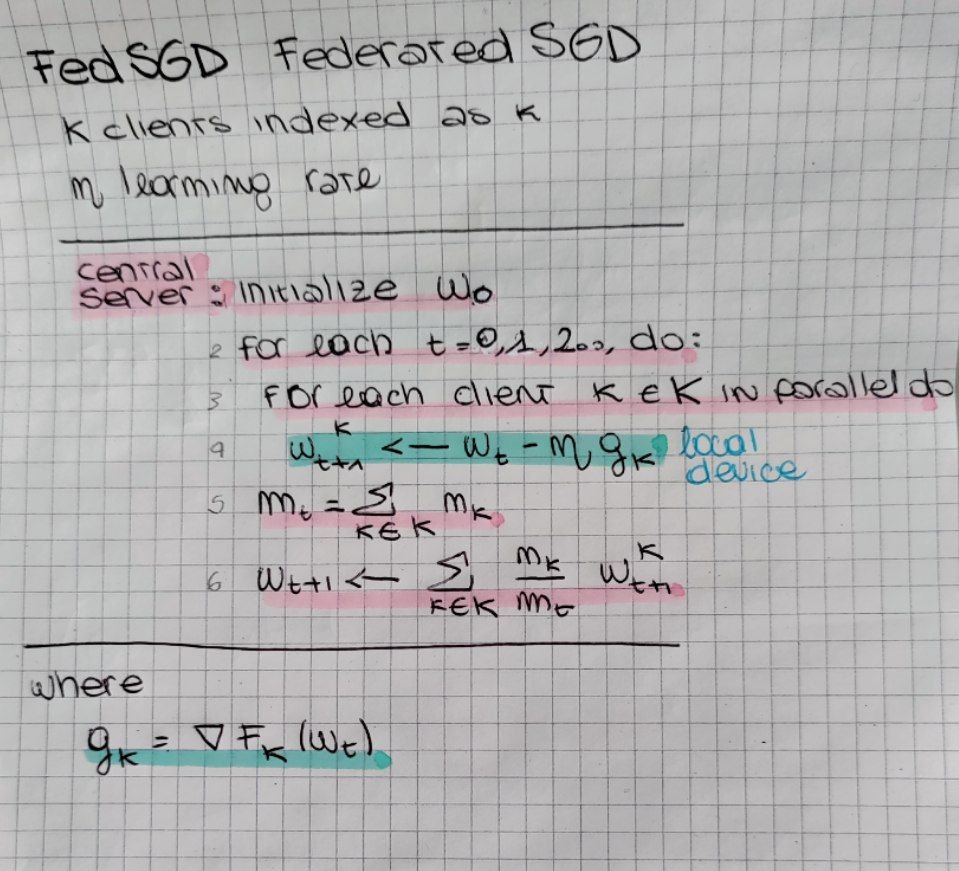 FedSGD Federated SGD
K clients indexed as k
η learning rate
central
server: initialize w₀
2 for each t=0,1,2..., do:
3 For each client k ∈ K in parallel do
4 wᵏₜ₊₁ <— wₜ - η gₖ local
device
5 mₜ = Σ mₖ
k∈K
6 wₜ₊₁ <— Σ mₖ/mₜ wᵏₜ₊₁
k∈K
where
gₖ = ∇Fₖ(wₜ)